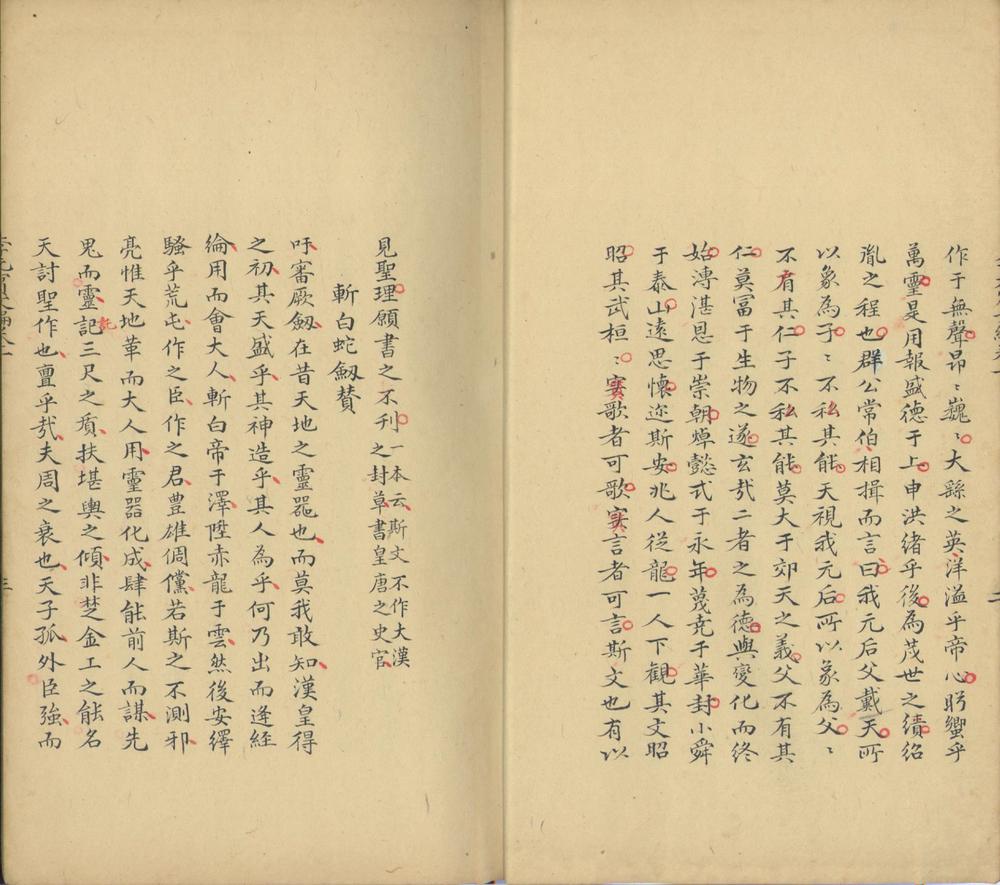 作于無聲昂〻巍〻大縣之英洋溢乎帝心肹蠁乎
萬靈是用報盛德于上申洪緒乎後為茂世之績紹
胤之程也群公常伯相揖而言曰我元后父戴天所
以象為子〻不私其能天視我元后所以象為父〻
不有其仁子不私其能莫大于郊天之義父不有其
仁莫冨于生物之遂玄㢤二者之為德與變化而終
始溥湛恩于崇朝焯懿式于永年蔑尭于華封小舜
于泰山遠思懷迩斯安兆人從龍一人下觀其文昭
昭其武桓〻實歌者可歌實言者可言斯文也有以
見聖理願書之不刋一本云斯文不作大漢
之封草書皇唐之史官
斬白蛇劔賛
吁審厥劔在昔天地之靈噐也而莫我敢知漢皇得
之初其天盛乎其神造乎其人為乎何乃出而逢經
綸用而會大人斬白帝于澤陞赤龍于雲然後安繹
騷乎荒屯作之臣作之君豊雄倜儻若斯之不測邪
亮惟天地革而大人用靈器化成肆能前人而謀先
鬼而靈記三尺之質扶堪輿之傾非楚金工之能名
託
天討聖作也亶乎㢤夫周之衰也天子孤外臣強而